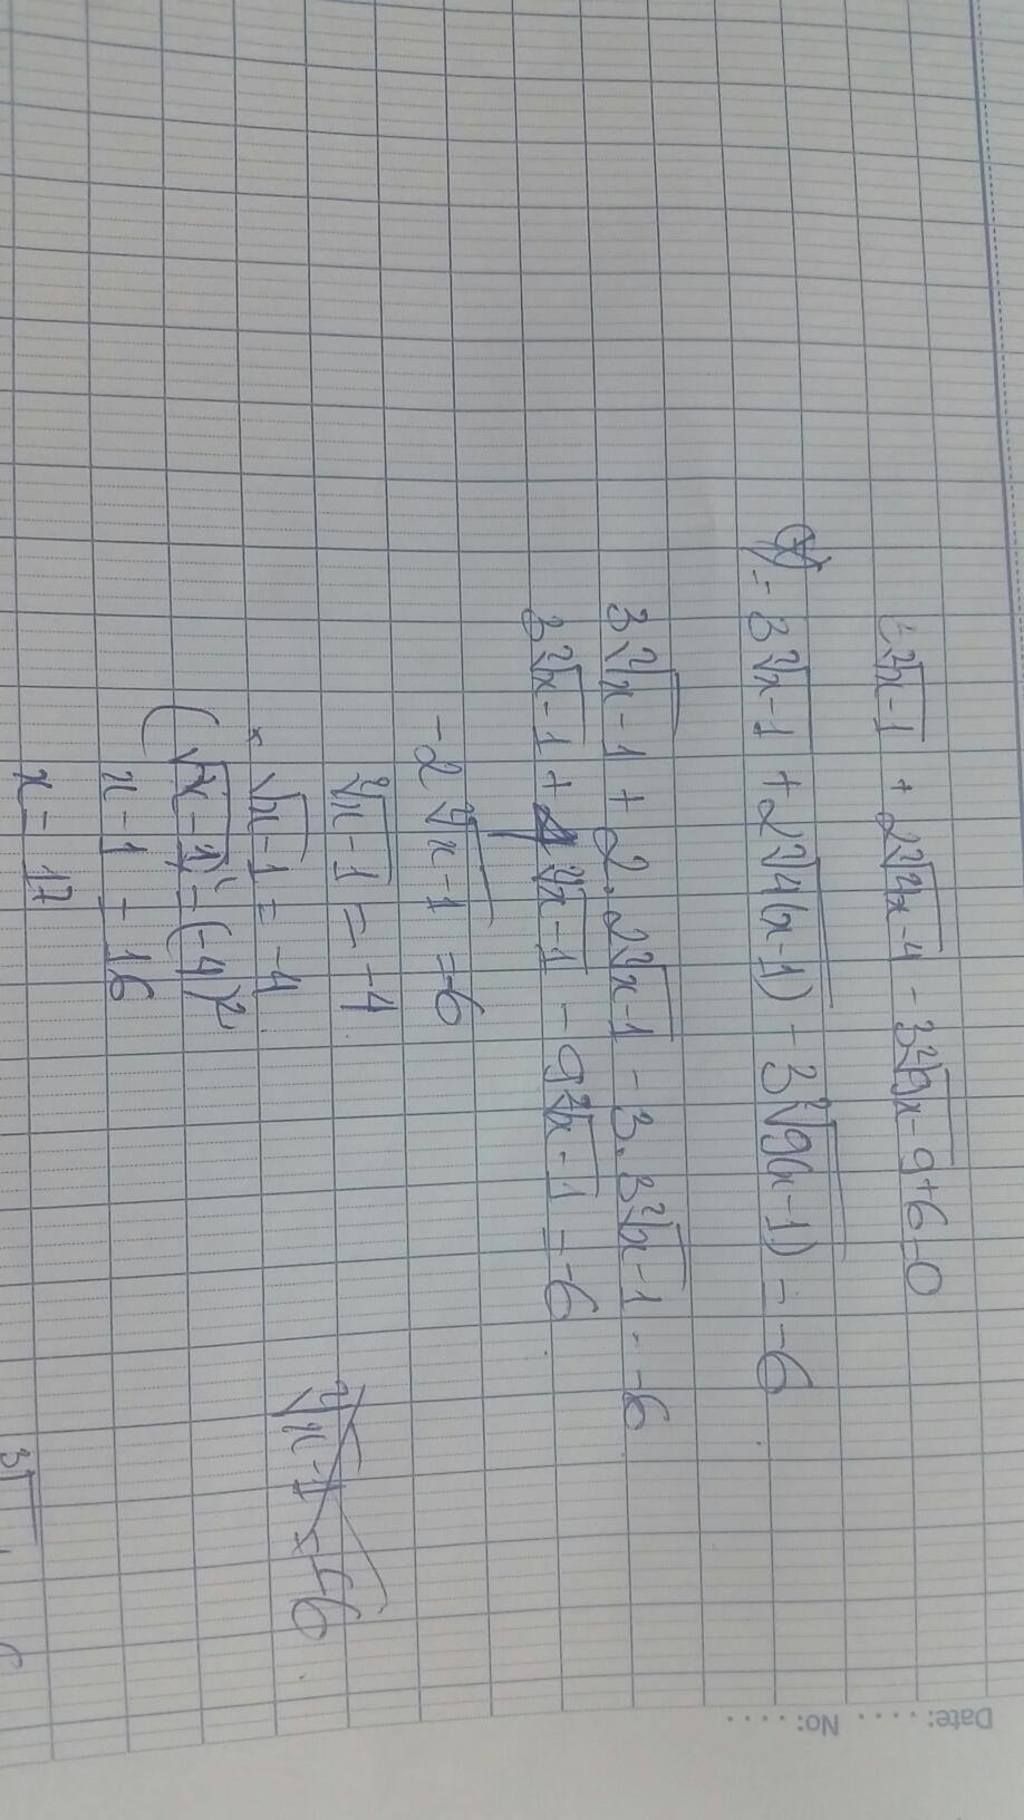 Date: ..... No: .....
3²√x-1 + 2²√4x-4 - 3²√9x-9+6=0
= 3²√x-1 + 2²√4(x-1) - 3²√9(x-1) = -6
3²√x-1 + 2.2²√x-1 - 3.3²√x-1 = -6
3²√x-1 + 4²√x-1 - 9²√x-1 = -6
-2²√x-1 = -6
²√x-1 = -4
√x-1 = -4
(√x-1)² = (-4)²
x-1 = 16
x = 17